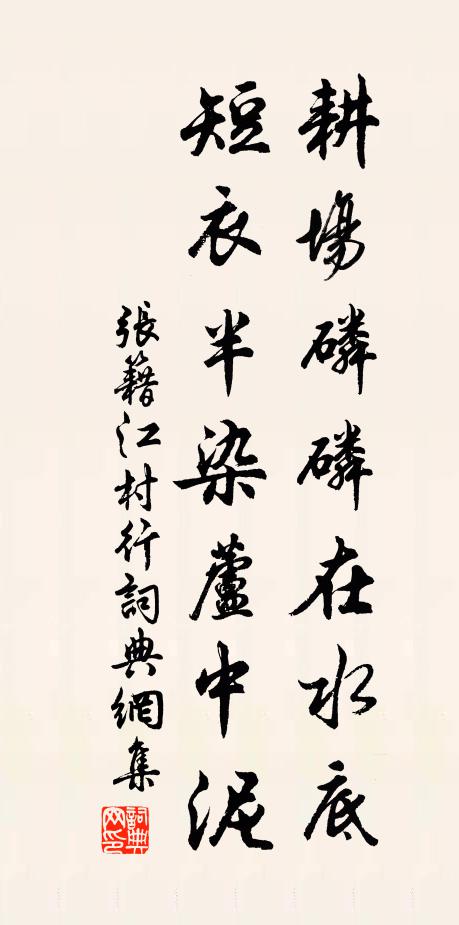 耕場磷磷在水底
短衣半染蘆中泥
張籍江村行詞典網集
詞典網印